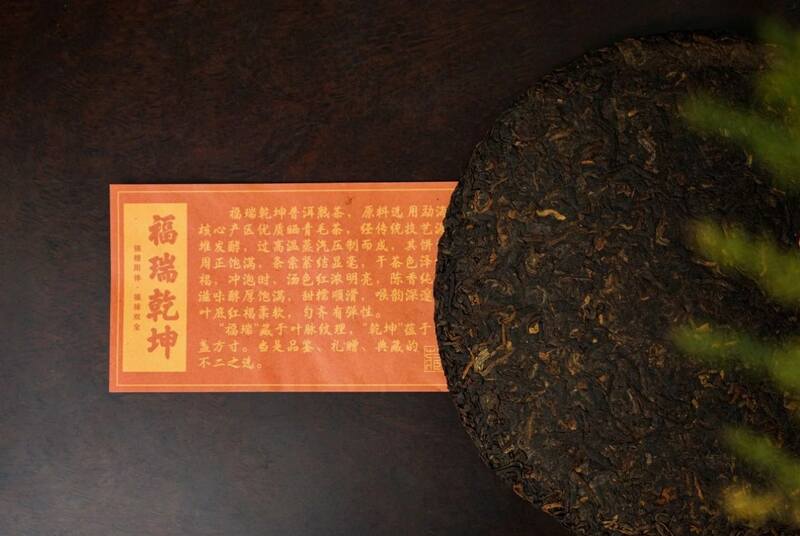 福瑞乾坤
福瑞乾坤普洱熟茶，原料选用勐海
核心产区优质晒青毛茶，经传统技艺
堆发酵，过高温蒸汽压制而成，其饼
周正饱满，条索紧结显毫，干茶色泽
褐，冲泡时，汤色红浓明亮，陈香纯
滋味醇厚饱满，甜糯顺滑，喉韵深邃
叶底红褐柔软，匀齐有弹性。
“福瑞”藏于叶脉纹理，“乾坤”蕴于
盏方寸。当是品鉴、礼赠、典藏的
不二之选。